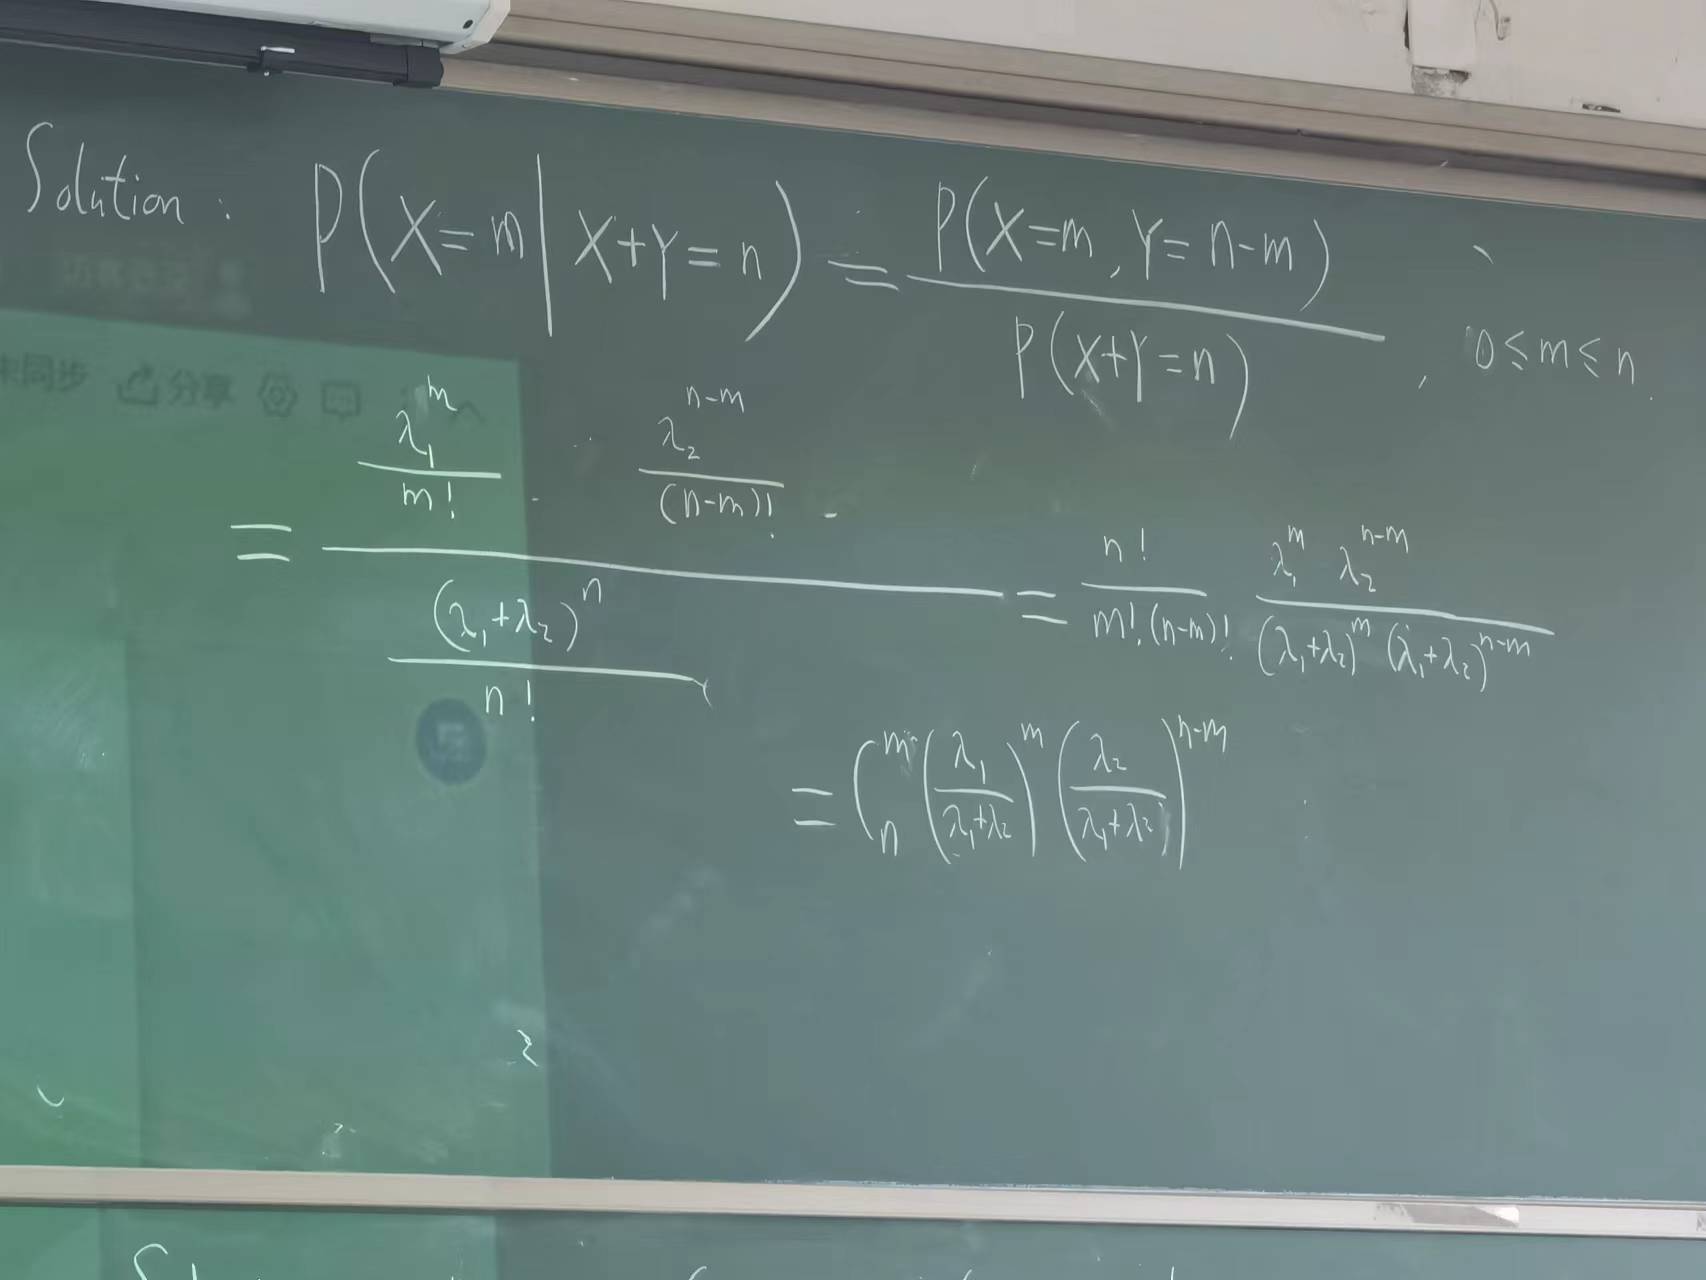 Solution: P(X=m | X+Y=n) = \frac{P(X=m, Y=n-m)}{P(X+Y=n)}, 0≤m≤n.
未同步 分享
= \frac{\frac{λ_1^m}{m!} · \frac{λ_2^{n-m}}{(n-m)!} ·}{\frac{(λ_1+λ_2)^n}{n!}} = \frac{n!}{m!·(n-m)!} \frac{λ_1^m λ_2^{n-m}}{(λ_1+λ_2)^m (λ_1+λ_2)^{n-m}}
= C_n^m (\frac{λ_1}{λ_1+λ_2})^m (\frac{λ_2}{λ_1+λ_2})^{n-m}